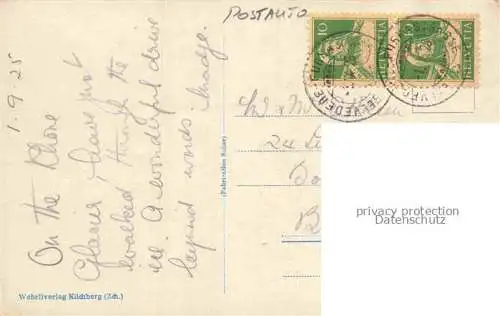 POSTAUTO
1.9.25
On the Rhone
Glacier, have just
walked through the
ice. A wonderful drive
beyond words. Madge.
(Fabrication Suisse)
Wehrliverlag Kilchberg (Zch.)
10 10
HELVETIA HELVETIA
BELVEDERE
privacy protection
Datenschutz